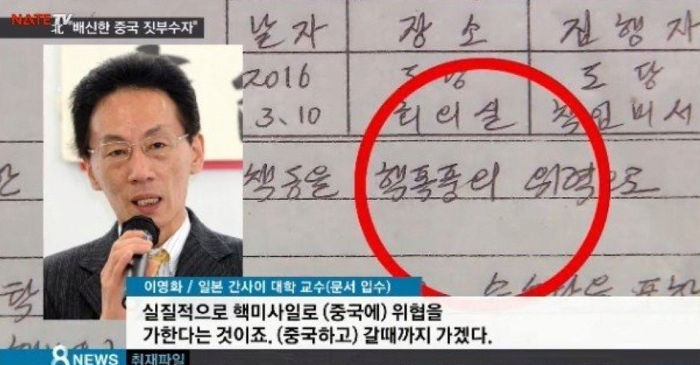 NATE TV
北 "배신한 중국 짓부수자"
날자 장소 집행자
2016 도당 도당
3.10 회의실 책임비서
책동을 핵폭풍의 위력으로
이영화 / 일본 간사이 대학 교수(문서 입수)
실질적으로 핵미사일로 (중국에) 위협을
가한다는 것이죠. (중국하고) 갈때까지 가겠다.
8 NEWS 취재파일